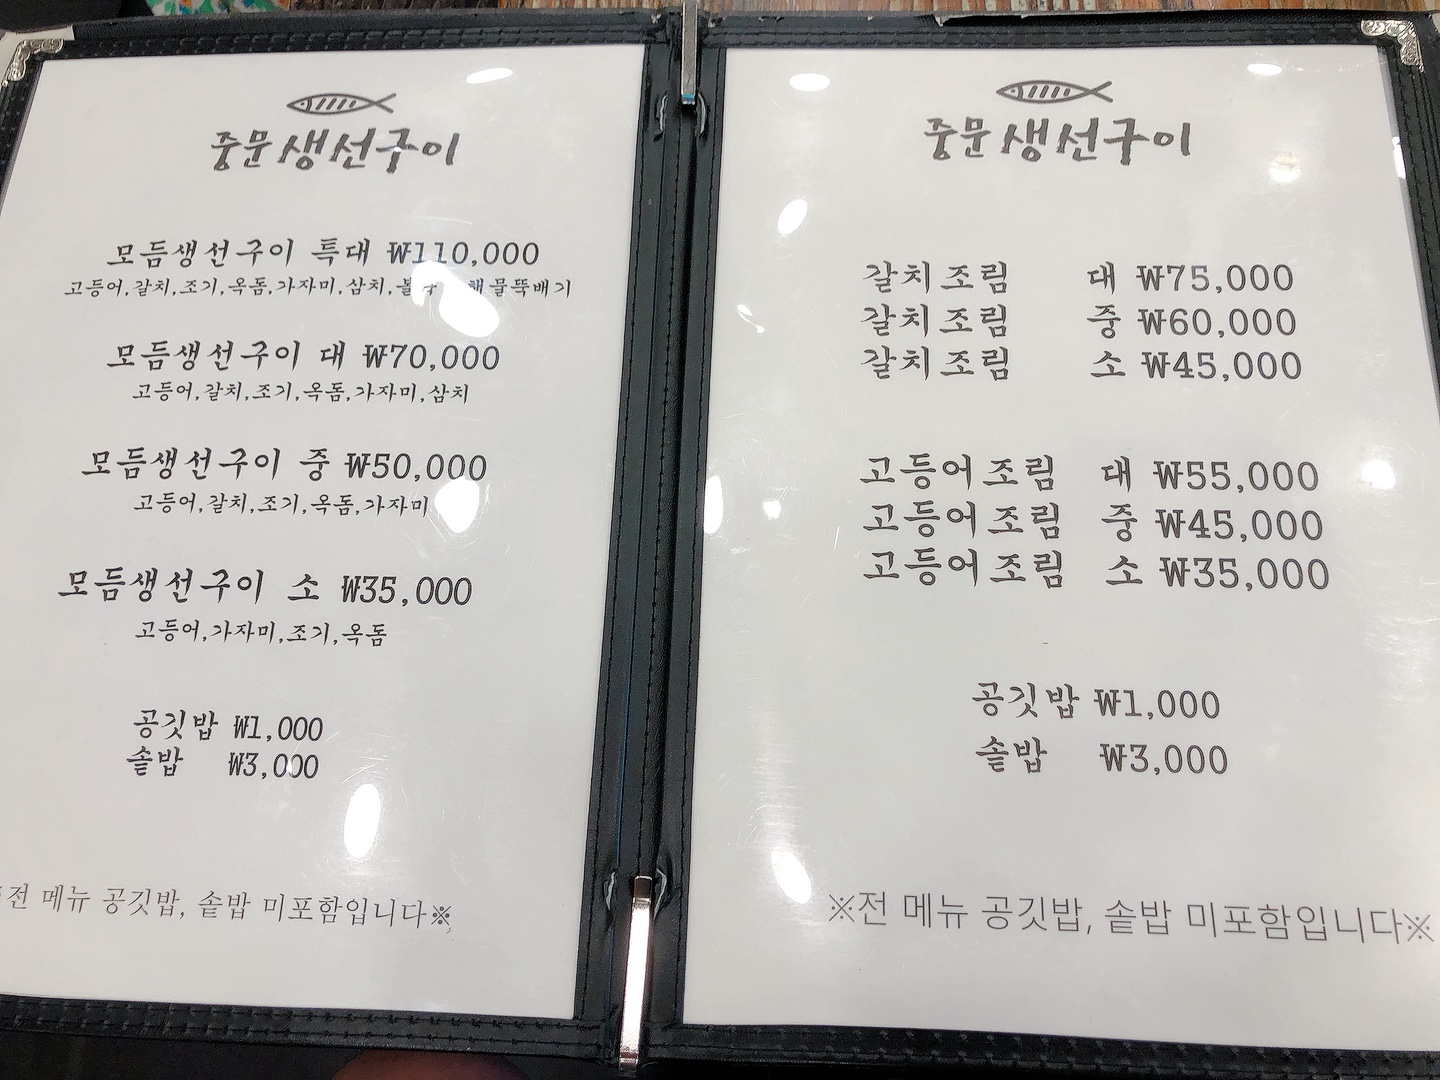 중문생선구이
모듬생선구이 특대 ₩110,000
고등어,갈치,조기,옥돔,가자미,삼치, 해물뚝배기
모듬생선구이 대 ₩70,000
고등어,갈치,조기,옥돔,가자미,삼치
모듬생선구이 중 ₩50,000
고등어,갈치,조기,옥돔,가자미
모듬생선구이 소 ₩35,000
고등어,가자미,조기,옥돔
공깃밥 ₩1,000
솥밥 ₩3,000
※전 메뉴 공깃밥, 솥밥 미포함입니다※
중문생선구이
갈치조림 대 ₩75,000
갈치조림 중 ₩60,000
갈치조림 소 ₩45,000
고등어조림 대 ₩55,000
고등어조림 중 ₩45,000
고등어조림 소 ₩35,000
공깃밥 ₩1,000
솥밥 ₩3,000
※전 메뉴 공깃밥, 솥밥 미포함입니다※